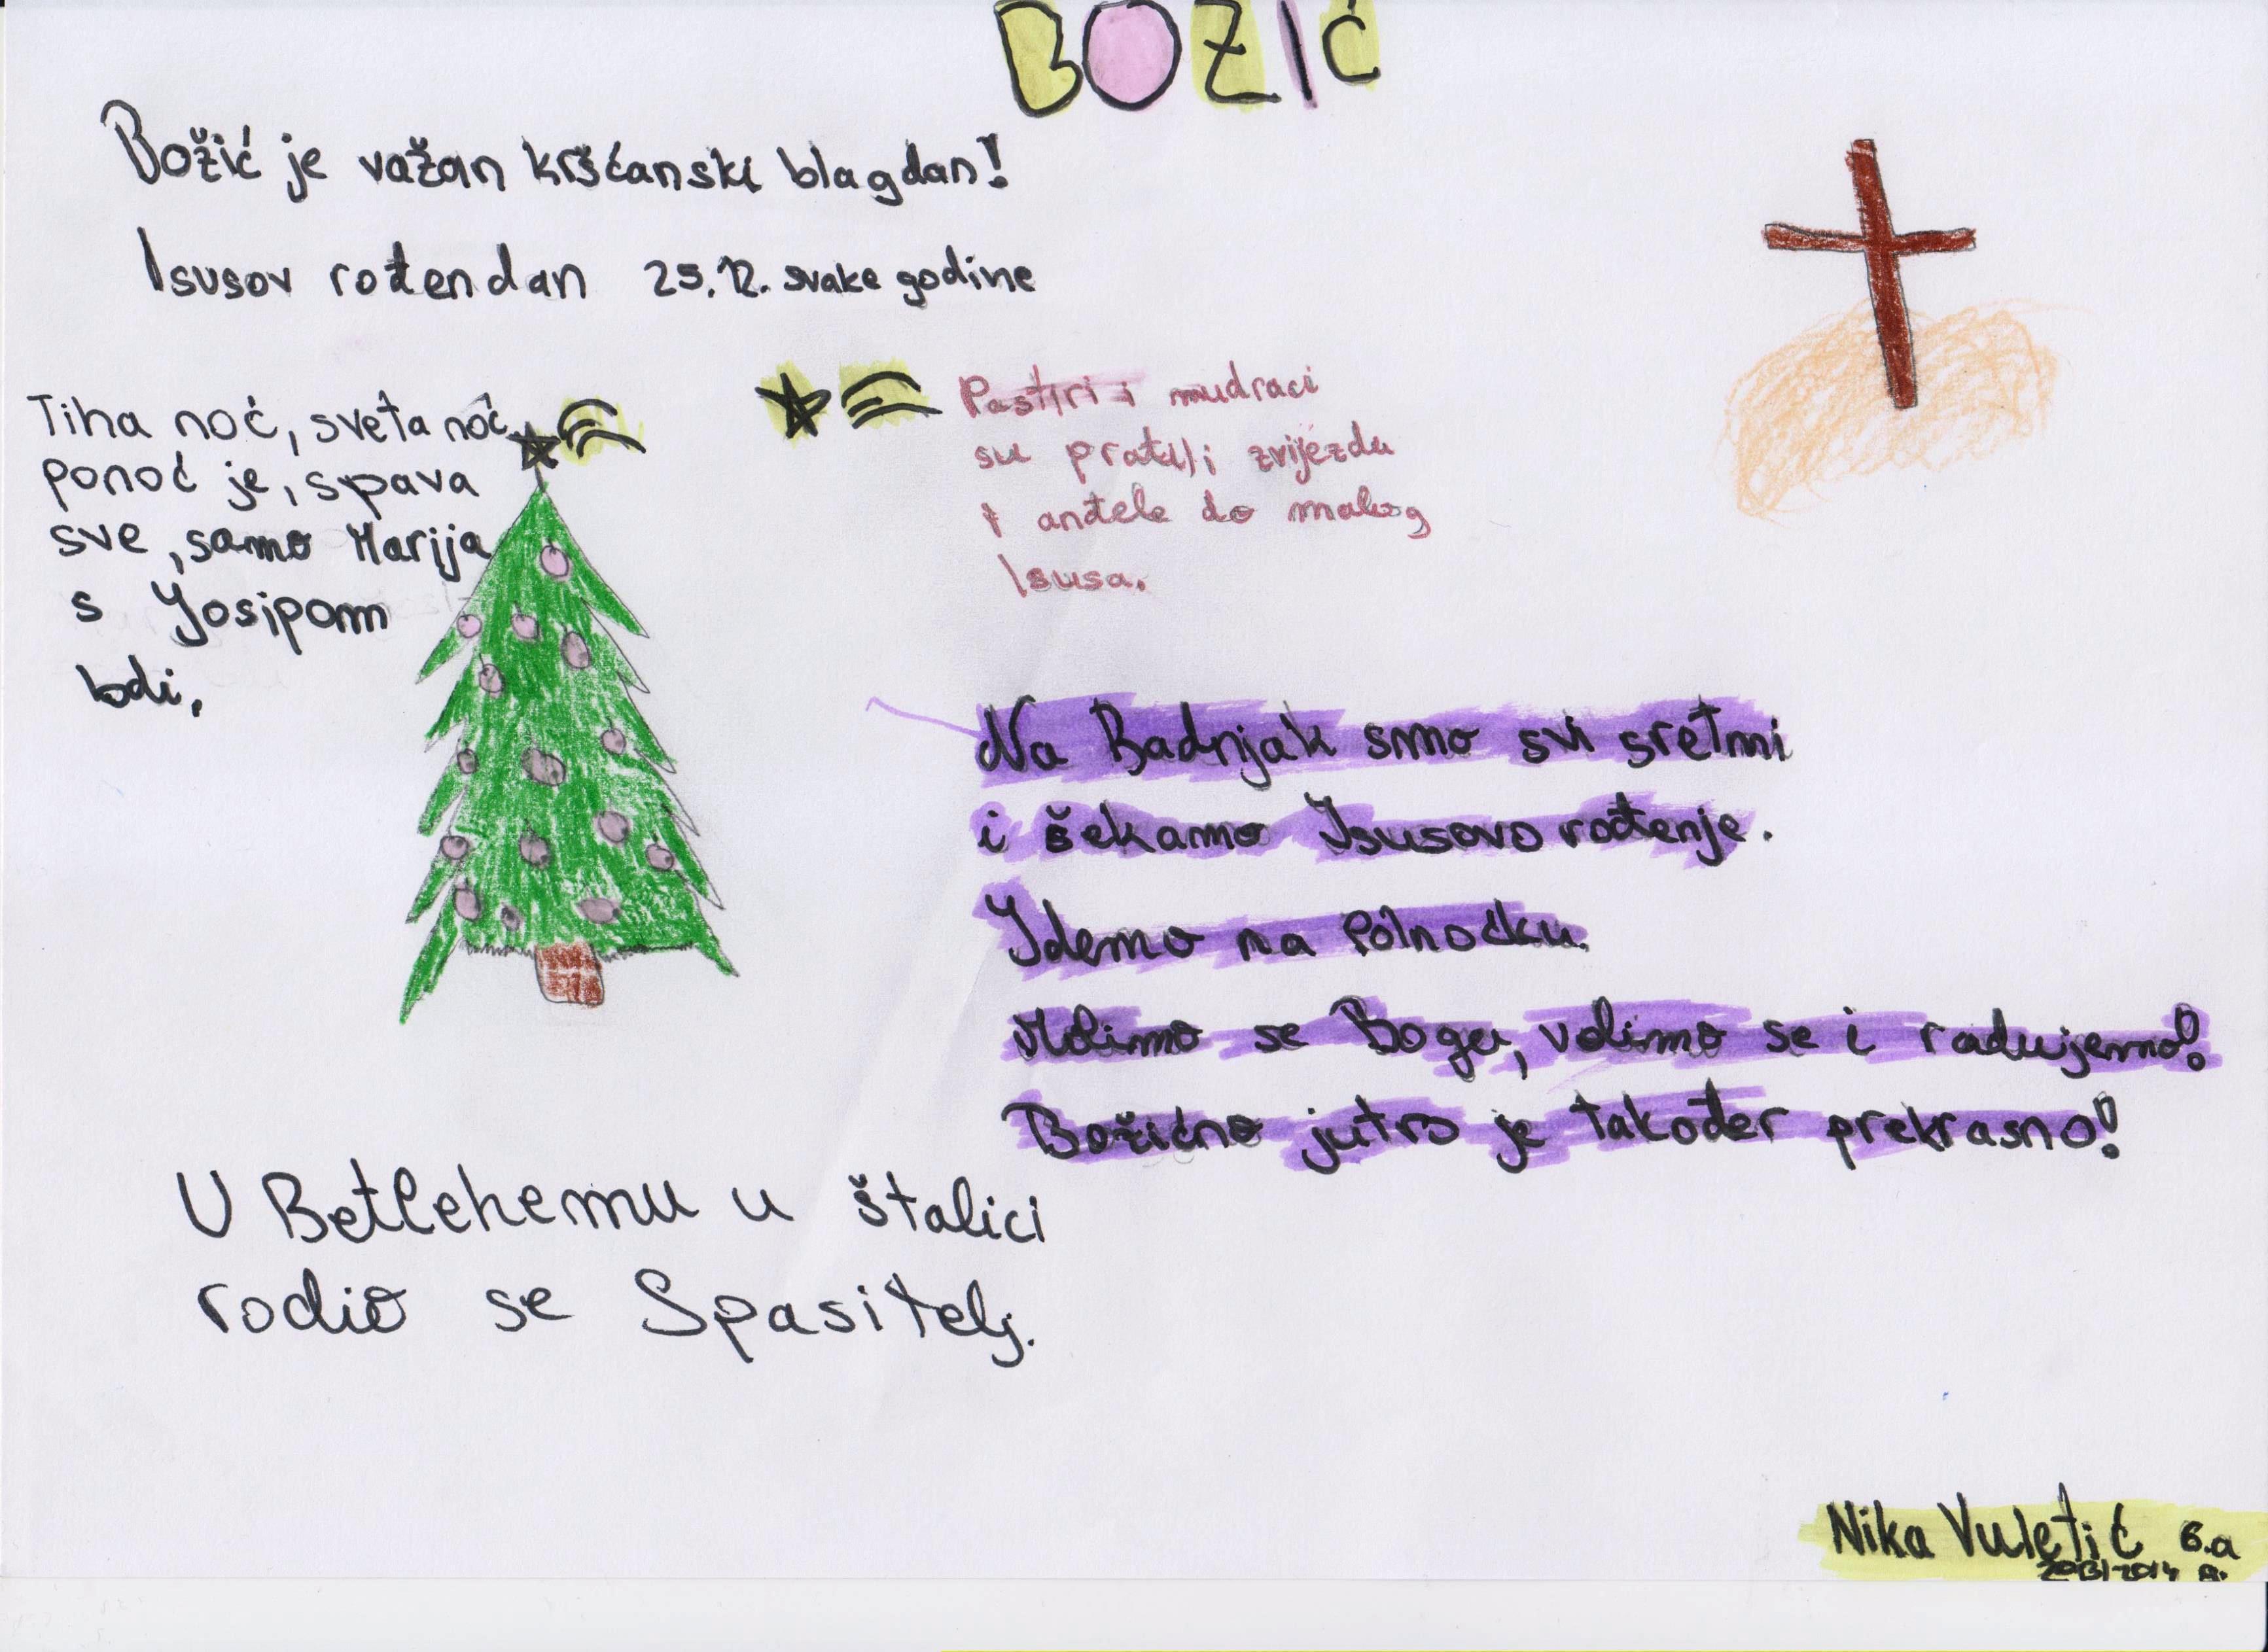 BOŽIĆ
Božić je važan kršćanski blagdan!
Isusov rođendan 25.12. svake godine
Tiha noć, sveta noć
ponoć je, spava
sve, samo Marija
s Josipom
bdi,
Pastiri i mudraci
su pratili zvijezdu
i anđele do malog
Isusa.
Na Badnjak smo svi sretni
i čekamo Isusovo rođenje.
Idemo na Polnoćku.
Molimo se Bogu, volimo se i radujemo!
Božićno jutro je također prekrasno!
U Betlehemu u štalici
rodio se Spasitelj.
Nika Vuletić 6.a
2013/2014 g.